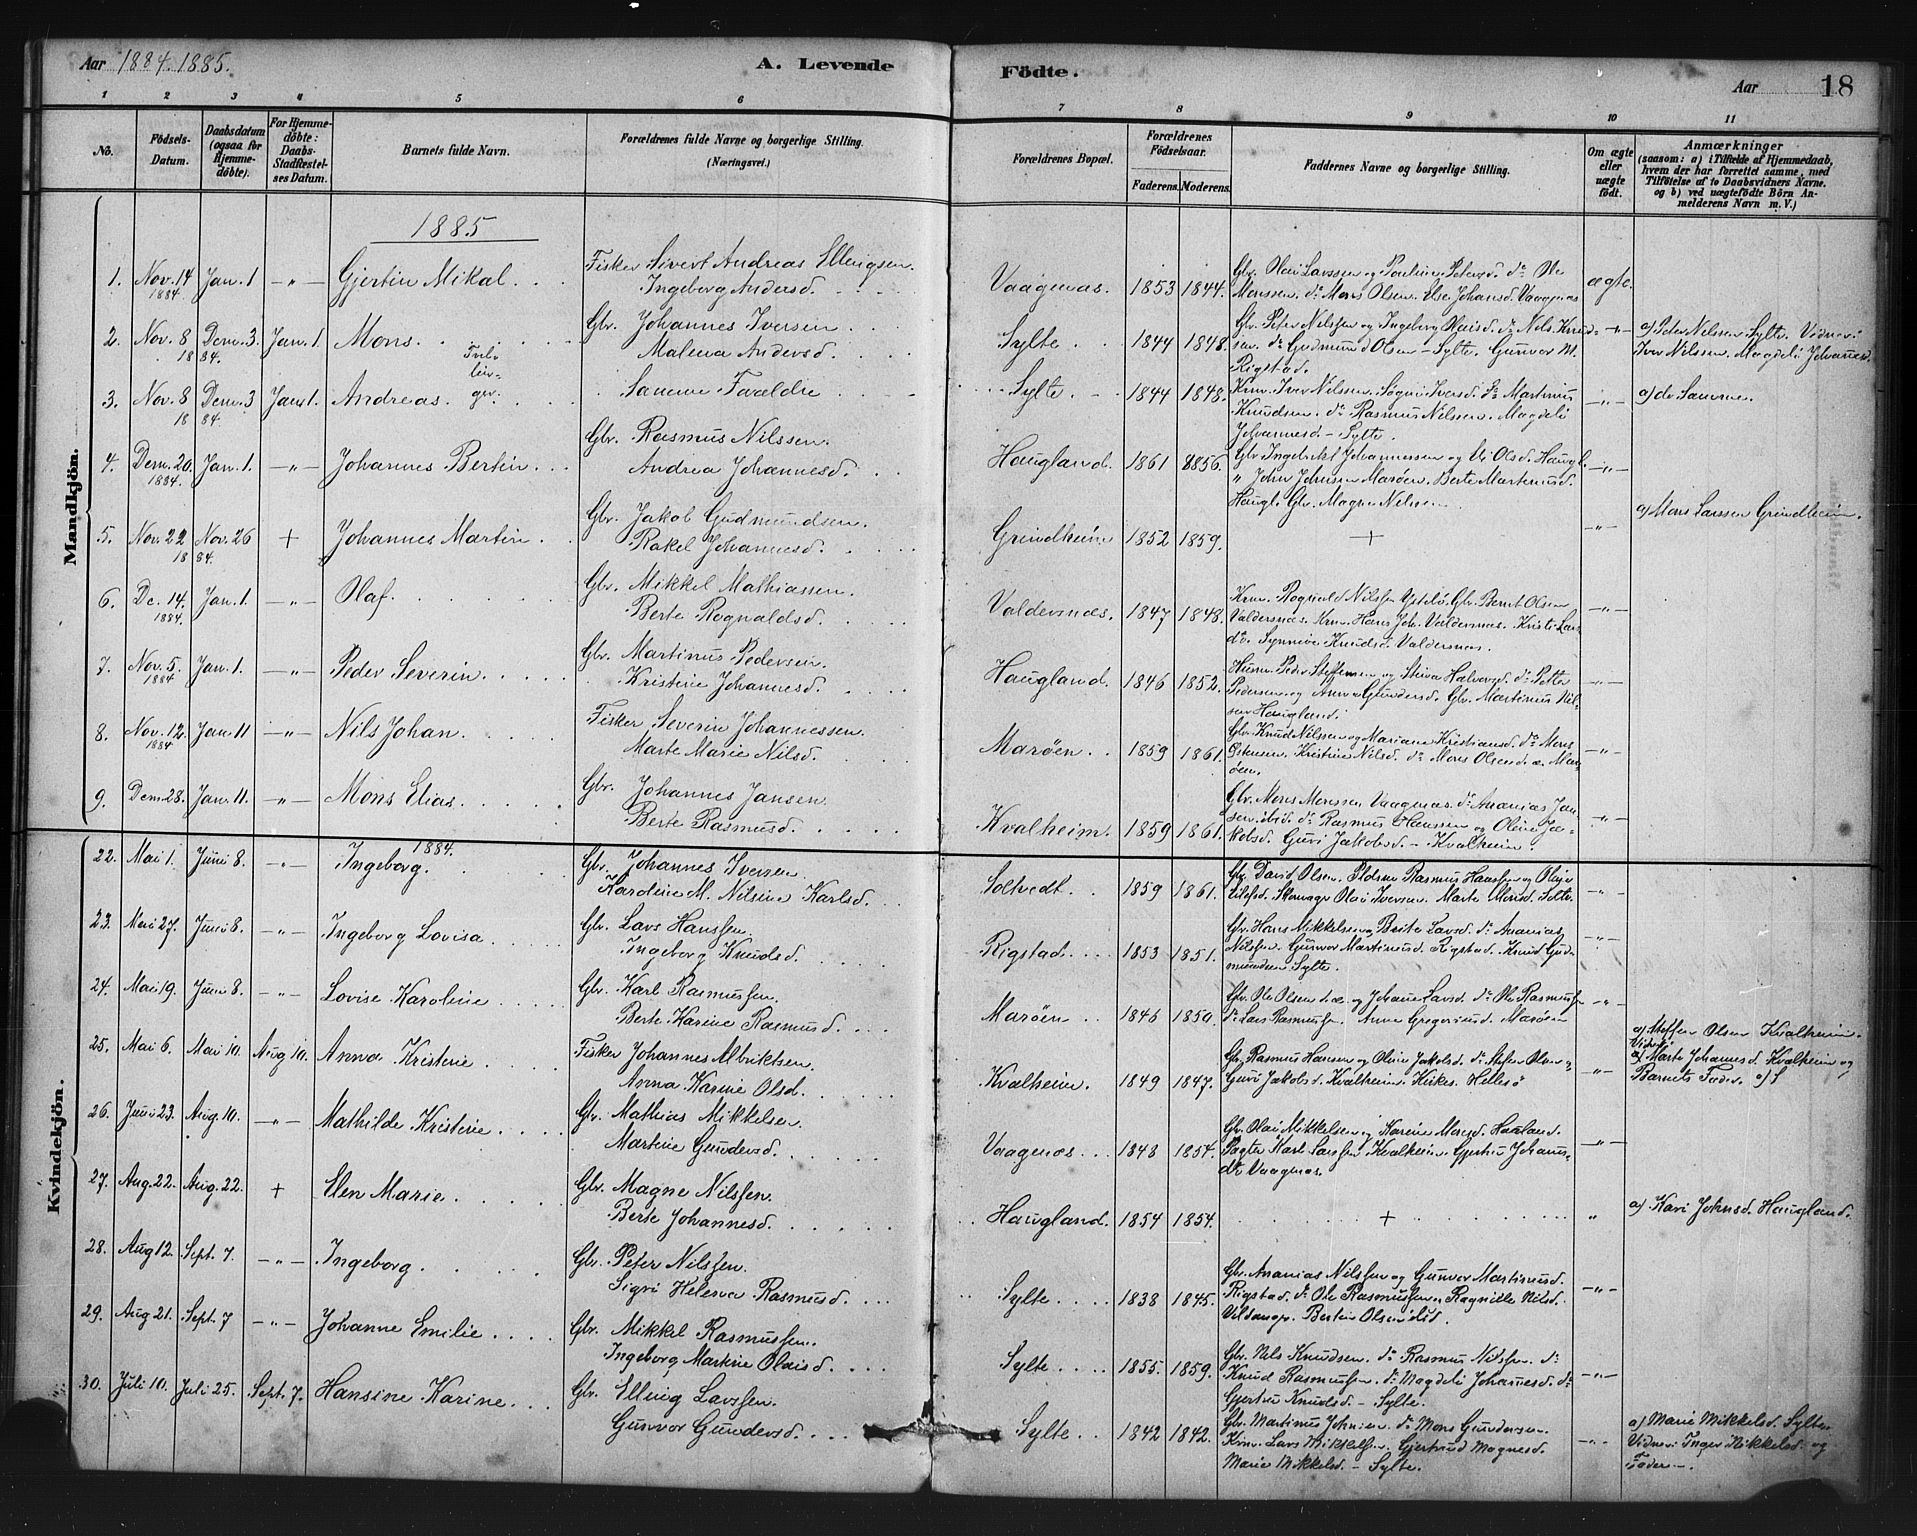 Aar 1884. 1885. A. Levende Födte. Aar 18
1 2 3 4 5 6 7 8 9 10 11
No. Födsels-Datum. Daabsdatum (ogsaa for Hjemmedöbte). For Hjemmedöbte: Daabs-Stadfæstelses Datum. Barnets fulde Navn. Forældrenes fulde Navne og borgerlige Stilling. (Næringsvei.) Forældrenes Bopæl. Forældrenes Födselsaar. Faderens. Moderens. Faddernes Navne og borgerlige Stilling. Om ægte eller uægte födt. Anmærkninger (saasom: a) i Tilfælde af Hjemmedaab, hvem der har forrettet samme, med Tilföielse af to Daabsvidners Navne. og b) ved uægtefödte Börn Anmelderens Navn m. V.)
Mandkjön.
1885
1. Nov. 14 1884 Jan. 1 -„- Gjertin Mikal. Fisker Sivert Andreas Ellengsen.
Ingeborg Andersd. Vaagenæs. 1853 1844. Gbr. Olai Larssen og Pauline Petersd. do Ole
Monssen. do Mons Olsen. Else Johansd. Vaagenæs ægte.
2. Nov. 8 1884. Dcm. 3. Jan. 1. Mons. Gbr. Johannes Iversen
Malena Andersd. Sylte. 1844 1848. Gbr. Peter Nilssen og Ingeborg Olaisd. do Nils Knud-
sen. do Gudmund Olsen - Sylte. Gunvor M.
Rigstad. -„- a) Peder Nilssen Sylte. Vidner:
Iver Nilssen. Magdeli Johannesd.
Tvil-
lin-
ger.
3. Nov. 8 1884. Dcm. 3 Jan. 1. Andreas. Samme Forældre Sylte. 1844 1848. Krm. Iver Nilssen. Søgni Iversd. do Martinus
Knudsen. do Rasmus Nilssen. Magdeli
Johannesd. - Sylte. -„- a) de Samme.
4. Dcm. 20. 1884. Jan. 1. -„- Johannes Bertin. Gbr. Rasmus Nilssen.
Andrea Johannesd. Haugland. 1861 1856. Gbr. Ingebrikt Johannessen og Olsd. Haugl.
„ John Johnsen Marøen. Berte Martinusd.
Haugl. Gbr. Magne Nilssen -„-
5. Nov. 22 1884. Nov. 26 + Johannes Martin. Gbr. Jakob Gudmundsen.
Rakel Johannesd. Grindheim 1852 1859. + -„- a) Mons Larssen Grindheim.
6. Dc. 14. 1884. Jan. 1. -„- Olaf. Gbr. Mikkel Mathiassen.
Berte Rognaldsd. Valdersnæs. 1847 1848. Krm. Rognald Nilssen Gbr. Bernt Olsen
Valdersnæs. Krm. Hans Joh. Valdersnæs. Kristi Lars-
do. Synneve Knudsd. Valdersnæs. -„-
7. Nov. 5. 1884 Jan. 1. -„- Peder Severin. Gbr. Martinus Pedersen.
Kristine Johannesd. Haugland. 1846 1852. Husm. Peder Steffensen og Stina Halvorsd. do Petter
Pedersen og Anna Gundersd. Gbr. Martinus Nil-
sen Haugland. -„-
8. Nov. 12. 1884 Jan. 11 -„- Nils Johan. Fisker Severin Johannessen.
Marte Marie Nilsd. Marøen. 1859 1861. Gbr. Knud Nilssen og Mariane Kristiansd. do Mons
Ostensen. Kristine Nilsd. do Mons Olsen d. æ. Mar-
øen. -„-
9. Dcm. 28. Jan. 11. -„- Mons Elias. Gbr. Johannes Jansen.
Berte Rasmusd. Kvalheim. 1859 1861. Gbr. Mons Monssen Vaagenæs. do Ananias Jan-
sen ibid. do Rasmus Hanssen og Oline Ja-
kobsd. Guri Jakobsd. - Kvalheim. -„-
Kvindekjön.
22. Mai 1. Juni 8. -„- 1884. Ingeborg. Gbr. Johannes Iversen.
Karoline M. Nilsine Karlsd. Soltvedt. 1859 1861. Gbr. David Olsen. Pldsm. Rasmus Hanssen og Oline
Skomager Olai Iversen. Marte Monsd. Sylte. -„-
23. Mai 27. Juni 8. -„- Ingeborg Lovisa. Gbr. Lars Hanssen.
Ingeborg Knudsd. Rigstad. 1853 1851. Gbr. Hans Mikkelsen og Brite Larsd. do Ananias
Nilssen. Gunvor Martinusd. Rigstad. Knud Gud-
mundsen Sylte. -„-
24. Mai 19. Juni 8. -„- Lovise Karoline. Gbr. Karl Rasmussen.
Berte Karine Rasmusd. Marøen. 1846 1850. Gbr. Ole Olsen d. æ. og Johane Larsd. do Ole Rasmuss.
do Lars Rasmuss. Anne Gregoriusd. Marøen -„-
25. Mai 6. Mai 10. Aug 10. Anna Kristine. Fisker Johannes Albriktsen.
Anna Karine Olsd. Kvalheim. 1849 1847. Gbr. Rasmus Hansen og Oline Jakobsd. do Stefen Olsen
Guri Jakobsd. Kvalheim. Kirkes. Hellesø -„- a) Steffen Olsen Kvalheim.
Vidner: Marte Johannesd. Kvalheim og
Barnets Fader.
26. Juni 23. Aug. 10. -„- Mathilde Kristine. Gbr. Mathias Mikkelsen.
Martine Gundersd. Vaagenæs. 1848 1854. Gbr. Olai Mikkelsen og Karine Monsd. Haugland.
Pagter Karl Larssen Kvalheim. Gjertru Johans-
dr Vaagenæs. -„-
27. Aug. 22. Aug. 22. + Elen Marie. Gbr. Magne Nilssen.
Berte Johannesd. Haugland. 1854 1854. + „ a) Kari Johnsd. Haugland.
28. Aug 12. Sept. 7. -„- Ingeborg. Gbr. Peter Nilssen.
Sigri Helena Rasmusd. Sylte. 1838 1845. Gbr. Ananias Nilssen og Gunvor Martinusd.
Rigstad. do Ole Rasmussen. Ragnille Nilsd.
Bertin Olsen ibid. -„-
29. Aug. 21. Sept. 7 -„- Johanne Emilie. Gbr. Mikkel Rasmussen.
Ingeborg Martine Olaisd. Sylte. 1855. 1859. Gbr. Nils Knudsen. do Rasmus Nilssen. do
Knud Rasmussen. do Magdeli Johannesd. do
Gjertru Knudsd. - Sylte. -„-
30. Juli 10. Juli 25. Sept. 7. Hansine Karine. Gbr. Elling Larssen.
Gunvor Gundersd. Sylte. 1842 1842. Gbr. Martinus Johnsen. do Mons Gundersen.
Krm. Lars Mikkelsen. Gjertrud Magnesd.
Marie Mikkelsd. - Sylte. -„- a) Marie Mikkelsd. Sylte.
Vidner: Inger Mikkelsd. og
Fader -.